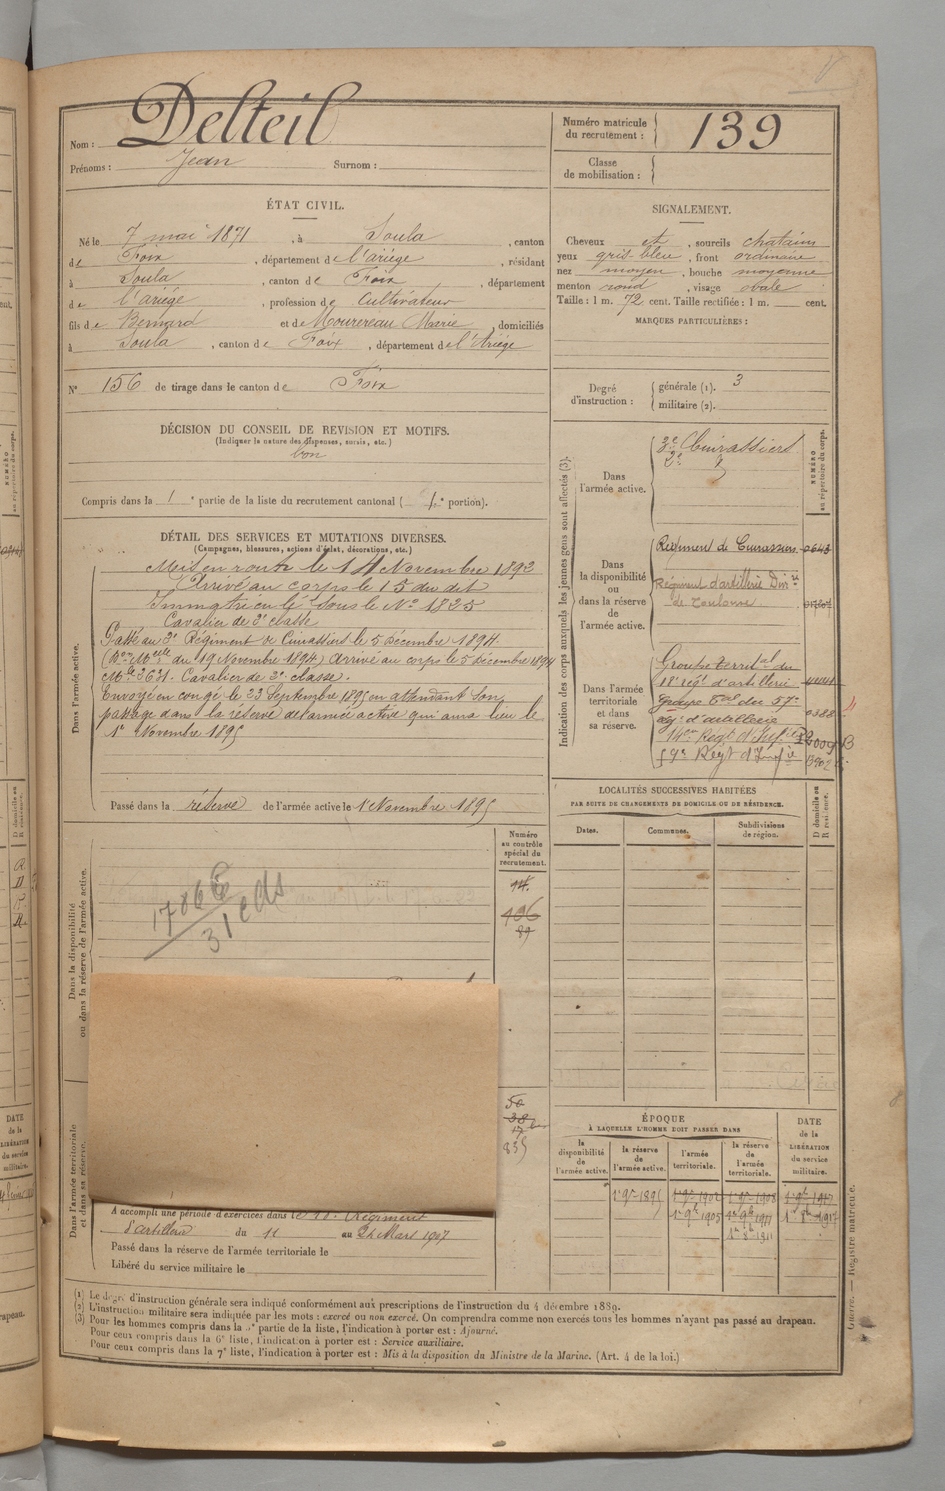 Nom : Delteil
Prénoms : Jean Surnom :
ÉTAT CIVIL.
Né le 7 mai 1871, à Soula, canton
de Foix, département de l'ariége, résidant
à Soula, canton de Foix, département
de l'ariége, profession de Cultivateur
fils de Bernard et de Mourereau Marie, domiciliés
à Soula, canton de Foix, département de l'Ariége
N° 156 de tirage dans le canton de Foix
DÉCISION DU CONSEIL DE REVISION ET MOTIFS.
(Indiquer la nature des dispenses, sursis, etc.)
bon
Compris dans la 1e partie de la liste du recrutement cantonal ( portion).
DÉTAIL DES SERVICES ET MUTATIONS DIVERSES.
(Campagnes, blessures, actions d'éclat, décorations, etc.)
Dans l'armée active.
Mis en route le 14 Novembre 1892
Arrivé au corps le 15 du dit
Immatriculé sous le N° 1825
Cavalier de 2e classe
Passé au 3e Régiment de Cuirassiers le 5 Décembre 1894.
(Bon Mcelle du 19 Novembre 1894) arrivé au corps le 5 décembre 1894
Mle 3631. Cavalier de 2e classe.
Envoyé en congé le 23 Septembre 1895 en attendant son
passage dans la réserve de l'armée active qui aura lieu le
1er Novembre 1895
Passé dans la réserve de l'armée active le 1 Novembre 1895
Dans la disponibilité
ou dans la réserve de l'armée active.
Numéro
au contrôle
spécial du
recrutement.
14.
406
89
31
50
835
Dans l'armée territoriale
et dans sa réserve.
A accompli une période d'exercices dans le Régiment
d'artillerie du 11 au 24 Mars 1907
Passé dans la réserve de l'armée territoriale le
Libéré du service militaire le
Numéro matricule
du recrutement : 139
Classe
de mobilisation :
SIGNALEMENT.
Cheveux et, sourcils chatains
yeux gris-bleu, front ordinaire
nez moyen, bouche moyenne
menton rond, visage ovale
Taille : 1 m. 72 cent. Taille rectifiée : 1 m. cent.
MARQUES PARTICULIÈRES :
Degré
d'instruction :
générale (1). 3
militaire (2).
Indication des corps auxquels les jeunes gens sont affectés (3).
NUMÉRO
au répertoire du corps.
Dans
l'armée active.
3e Cuirassiers
2e
Dans
la disponibilité
ou
dans la réserve
de
l'armée active.
Régiment de Cuirassiers 0643
Régiment d'artillerie Divre
de Toulouse
Dans l'armée
territoriale
et dans
sa réserve.
Groupe territal du
18e régt d'artillerie
Groupe Teal du 57e
régt d'artillerie 0388
Regt d'Infie
59e Regt d'Infie
LOCALITÉS SUCCESSIVES HABITÉES
PAR SUITE DE CHANGEMENTS DE DOMICILE OU DE RÉSIDENCE.
Dates.
Communes.
Subdivisions
de région.
D domicile ou
R résidence.
ÉPOQUE
À LAQUELLE L'HOMME DOIT PASSER DANS
la
disponibilité
de
l'armée active.
la réserve
de
l'armée active.
l'armée
territoriale.
la réserve
de
l'armée
territoriale.
DATE
de la
LIBÉRATION
du service
militaire.
1er 9bre 1895
(1) Le degré d'instruction générale sera indiqué conformément aux prescriptions de l'instruction du 4 décembre 1889.
(2) L'instruction militaire sera indiquée par les mots : exercé ou non exercé. On comprendra comme non exercés tous les hommes n'ayant pas passé au drapeau.
(3) Pour les hommes compris dans la 5e partie de la liste, l'indication à porter est : Ajourné.
Pour ceux compris dans la 6e liste, l'indication à porter est : Service auxiliaire.
Pour ceux compris dans la 7e liste, l'indication à porter est : Mis à la disposition du Ministre de la Marine. (Art. 4 de la loi.)
Guerre. — Registre matricule.
DATE
de la
LIBÉRATION
du service
militaire.